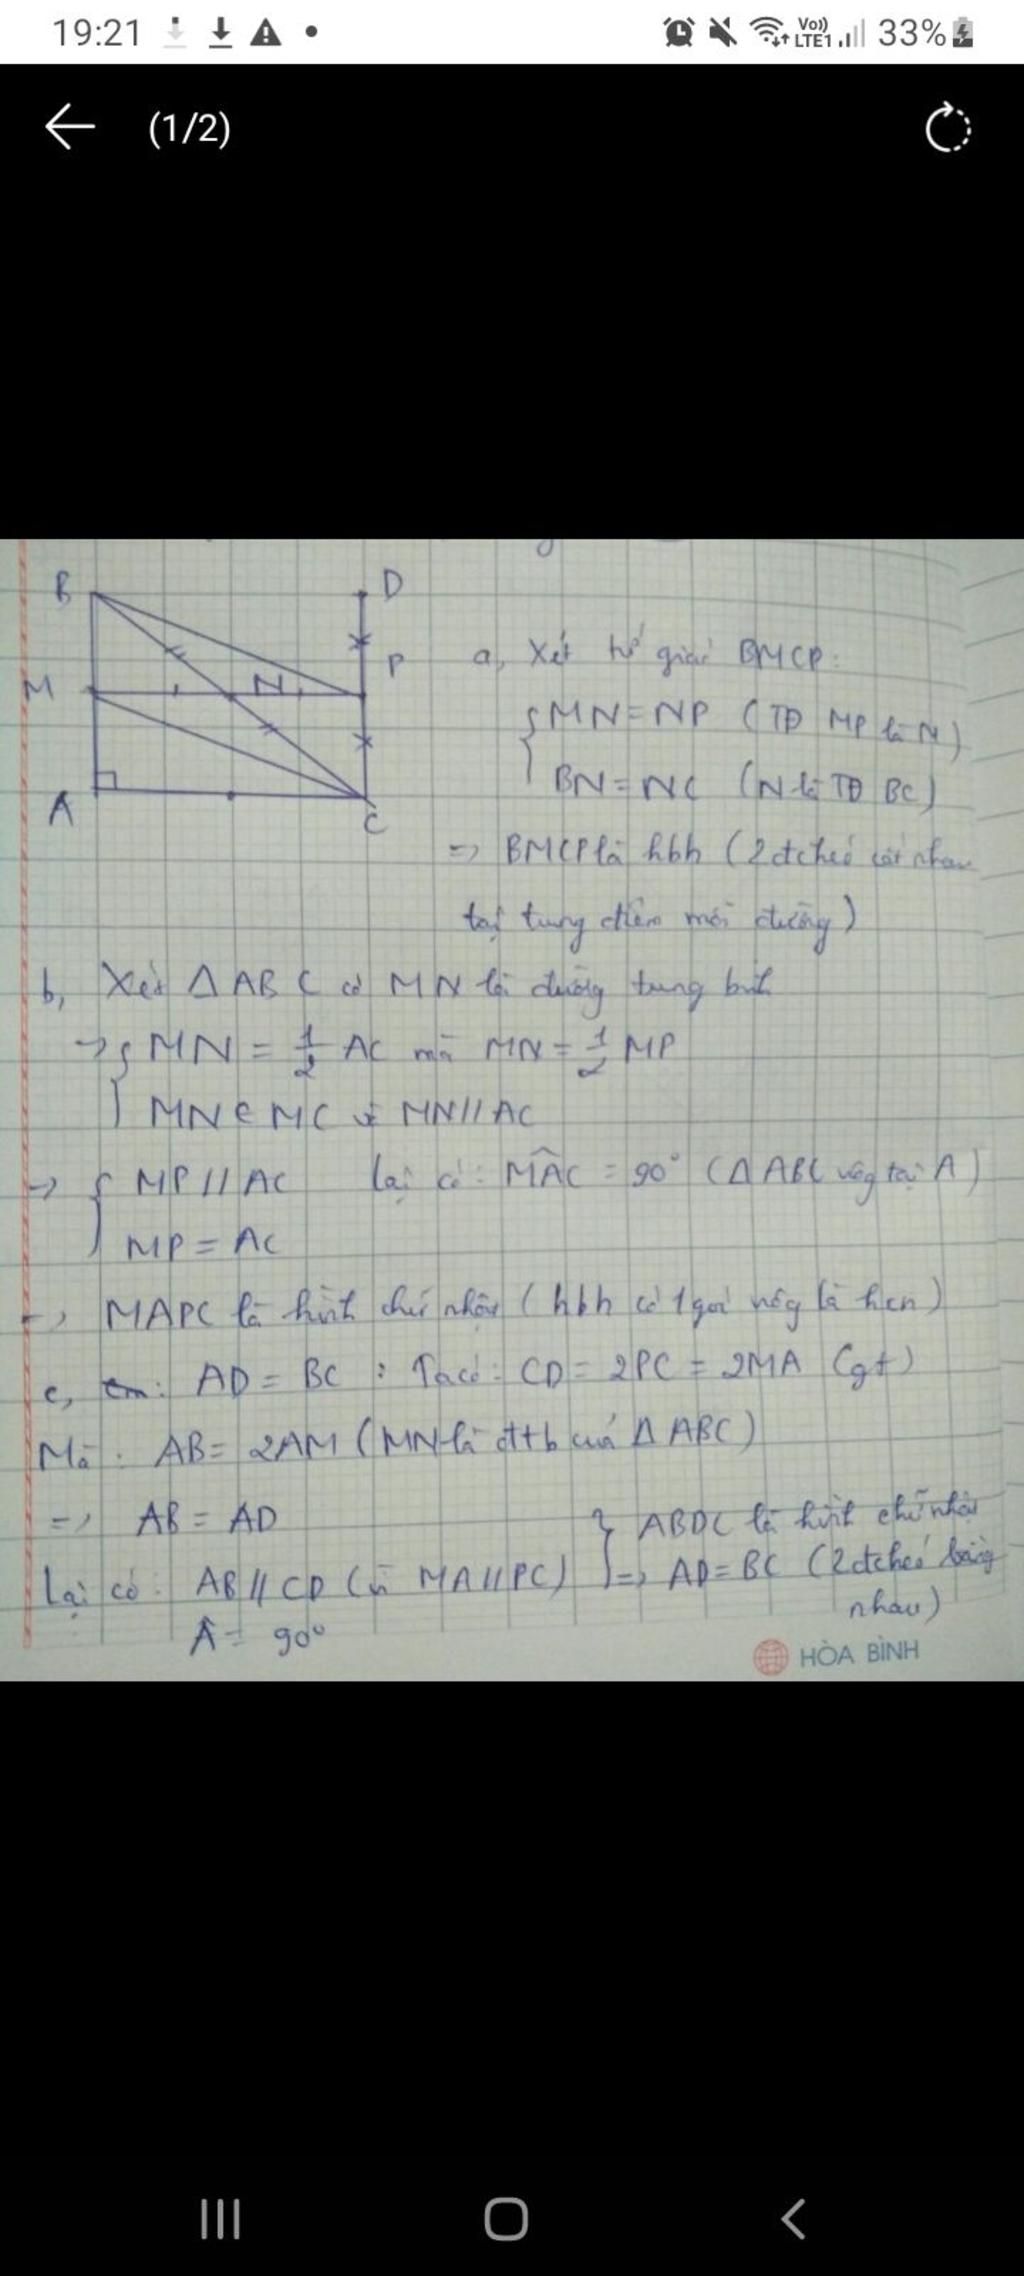 19:21
Vo))
LTE1
33%
(1/2)
B
D
M
N
P
A
C
a, Xét tứ giác BMCP:
MN = NP (TĐ MP là N)
BN = NC (N là TĐ BC)
=> BMCP là hbh (2 đchéo cắt nhau
tại trung điểm mỗi đường)
b, Xét Δ ABC có MN là đường trung bình
-> MN = 1/2 AC mà MN = 1/2 MP
MN ∈ MC và MN // AC
-> MP // AC lại có: MAC = 90° (Δ ABC vg tại A)
MP = AC
-> MAPC là hình chữ nhật (hbh có 1 góc vg là hcn)
c, cm: AD = BC : Ta có: CD = 2PC = 2MA (gt)
Mà: AB = 2AM (MN là đtb của Δ ABC)
=> AB = AD
ABDC là hình chữ nhật
Lại có: AB // CD (vì MA // PC)
=> AD = BC (2 đchéo bằng
nhau)
Â = 90°
HÒA BÌNH